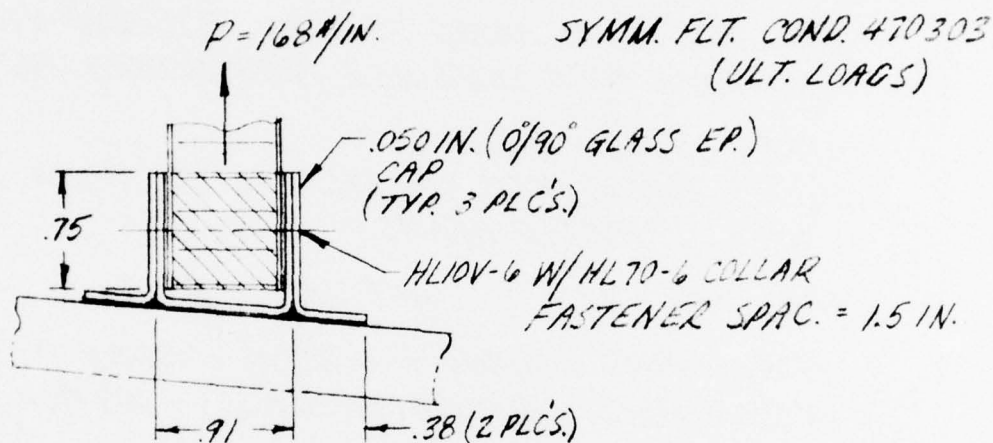 P = 168 #/IN.
SYMM. FLT. COND. 470303
(ULT. LOADS)
.050 IN. (0°/90° GLASS EP.)
CAP
(TYP. 3 PLC'S.)
.75
HL10V-6 W/ HL70-6 COLLAR
FASTENER SPAC. = 1.5 IN.
.91
.38 (2 PLC'S.)